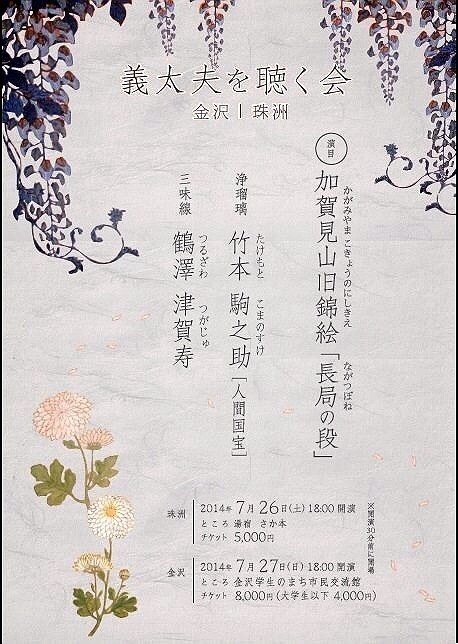 義太夫を聴く会
金沢|珠洲
演目
加賀見山旧錦絵「長局の段」
かがみやま こきょうのにしきえ ながつぼね
浄瑠璃
竹本 駒之助[人間国宝]
たけもと こまのすけ
三味線
鶴澤 津賀寿
つるざわ つがじゅ
珠洲
2014年 7月26日(土) 18:00 開演
ところ 湯宿 さか本
チケット 5,000円
金沢
2014年 7月27日(日) 18:00 開演
ところ 金沢学生のまち市民交流館
チケット 8,000円(大学生以下 4,000円)
※開演30分前に開場